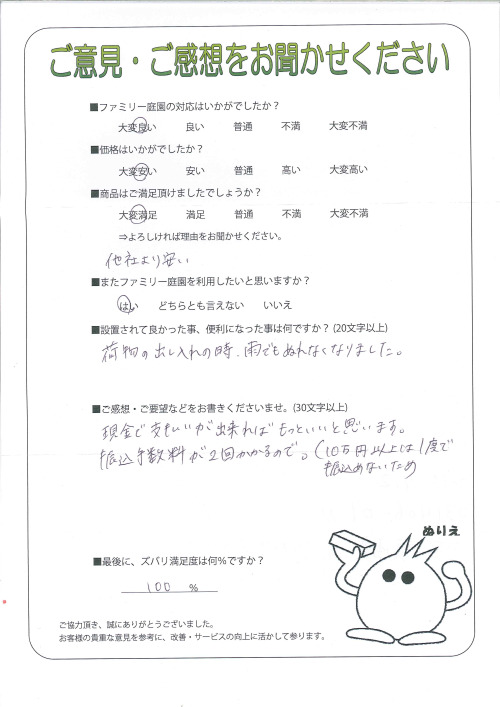 ご意見・ご感想をお聞かせください
■ファミリー庭園の対応はいかがでしたか？
大変良い 良い 普通 不満 大変不満
■価格はいかがでしたか？
大変安い 安い 普通 高い 大変高い
■商品はご満足頂けましたでしょうか？
大変満足 満足 普通 不満 大変不満
⇒よろしければ理由をお聞かせください。
他社より安い
■またファミリー庭園を利用したいと思いますか？
はい どちらとも言えない いいえ
■設置されて良かった事、便利になった事は何ですか？(20文字以上)
荷物の出し入れの時、雨でもぬれなくなりました。
■ご感想・ご要望などをお書きくださいませ。(30文字以上)
現金で支払いが出来ればもっといいと思います。
振込手数料が2回かかるので。(10万円以上は1度で
振込めないため
ぬりえ
■最後に、ズバリ満足度は何%ですか？
100 %
ご協力頂き、誠にありがとうございました。
お客様の貴重な意見を参考に、改善・サービスの向上に活かして参ります。